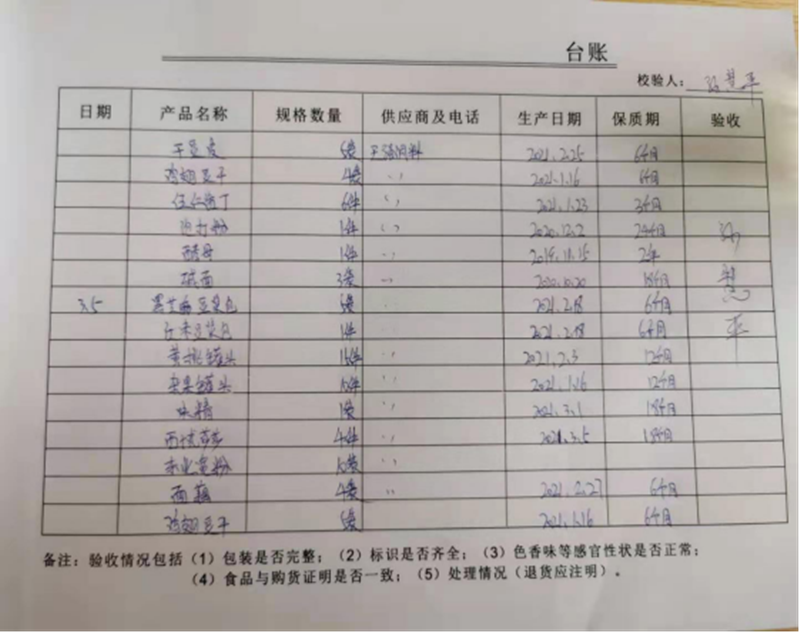 台账
校验人：
日期 产品名称 规格数量 供应商及电话 生产日期 保质期 验收
干豆皮 5袋 2021.2.25 6个月
鸡翅豆干 4袋 〃 2021.1.16 6个月
6件 〃 2021.1.23 3个月
泡打粉 1件 〃 2020.12.2 24个月
酵母 1件 〃 2019.11.15 2年
碱面 3袋 〃 2020.10.20 18个月
3.5 黑芝麻豆浆包 5袋 〃 2021.2.18 6个月
豆浆包 1件 〃 2021.2.18 6个月
黄桃罐头 〃 2021.2.3 12个月
罐头 〃 2021.1.16 12个月
味精 1袋 〃 2021.3.1 18个月
4件 〃 2021.3.5 18个月
〃
4袋 〃 2021.2.27 6个月
鸡翅豆干 5袋 2021.1.16 6个月
备注：验收情况包括（1）包装是否完整；（2）标识是否齐全；（3）色香味等感官性状是否正常；
（4）食品与购货证明是否一致；（5）处理情况（退货应注明）。